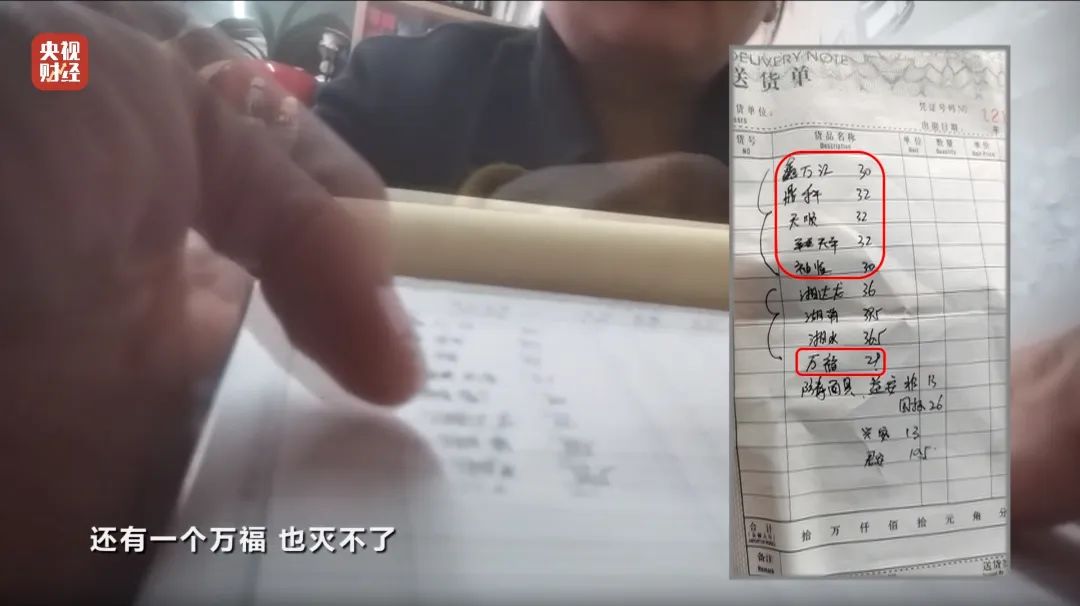 央视
财经
DELIVERY NOTE
送货单
货单位:
凭证号码NO
121
出崩日期
年
货号
NO
货品名称
Description
单位
Unit
数量
Quantity
单价
Unit Price
鑫万江 30
鼎籽 32
天顺 32
32
30
湘达龙 36
湖南 38.5
湘水 36.5
万福 29
防毒面具
13
国标 26
兴安 13
10.5
合计
拾 万 仟 佰 拾 元 角 分
备注
Remark
送货
还有一个万福 也灭不了